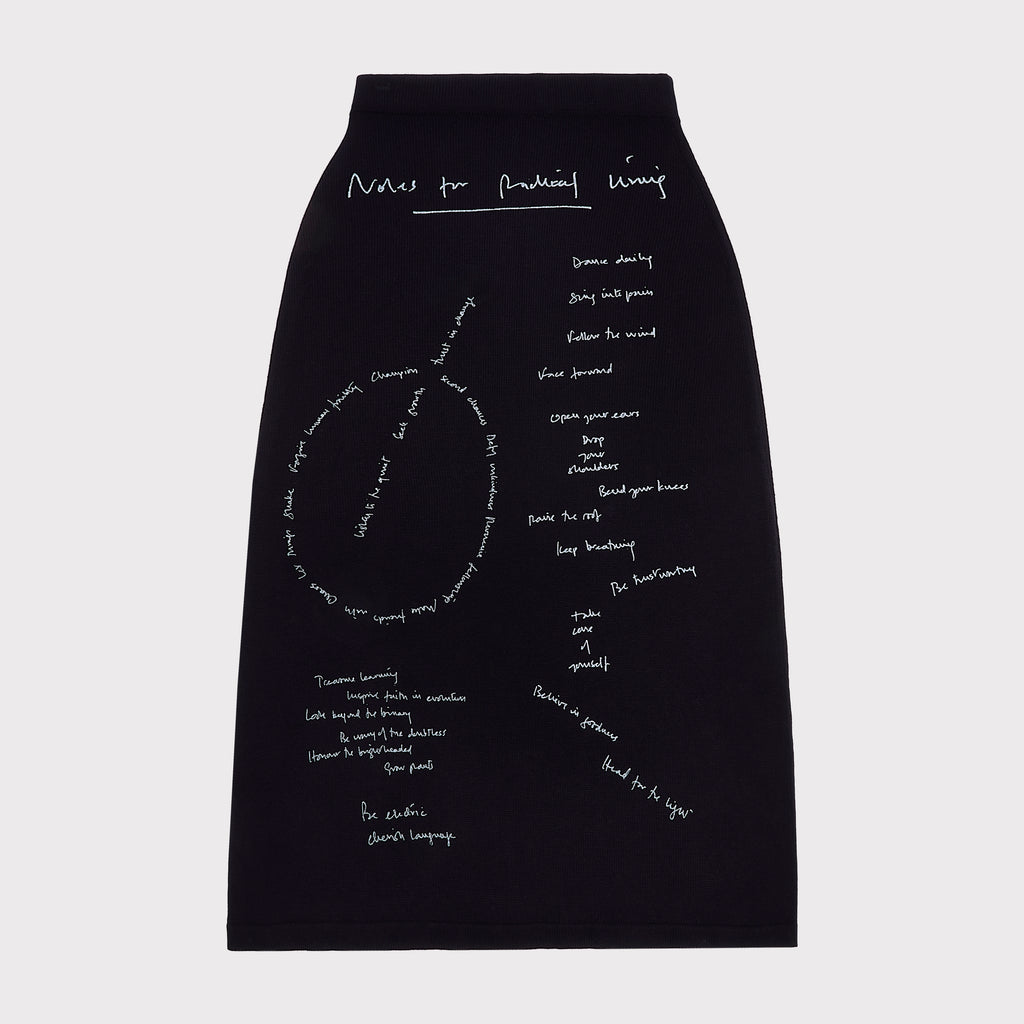 Notes for Radical living
Dance daily
Sing into pain
Follow the wind
Face forward
Open your ears
Drop
your
shoulders
Bend your knees
Raise the roof
Keep breathing
Be trustworthy
take
care
of
yourself
Believe in goodness
Head for the light
trust in change
Seek growth
Listen to the quiet
Champion second chances Defy unkindness Pursue fellowship Make friends with Chaos Let things shake Forgive human frailty
Treasure learning
Inspire faith in evolution
Look beyond the binary
Be wary of the doubtless
Honour the bigger hearted
Grow plants
Be electric
Cherish language